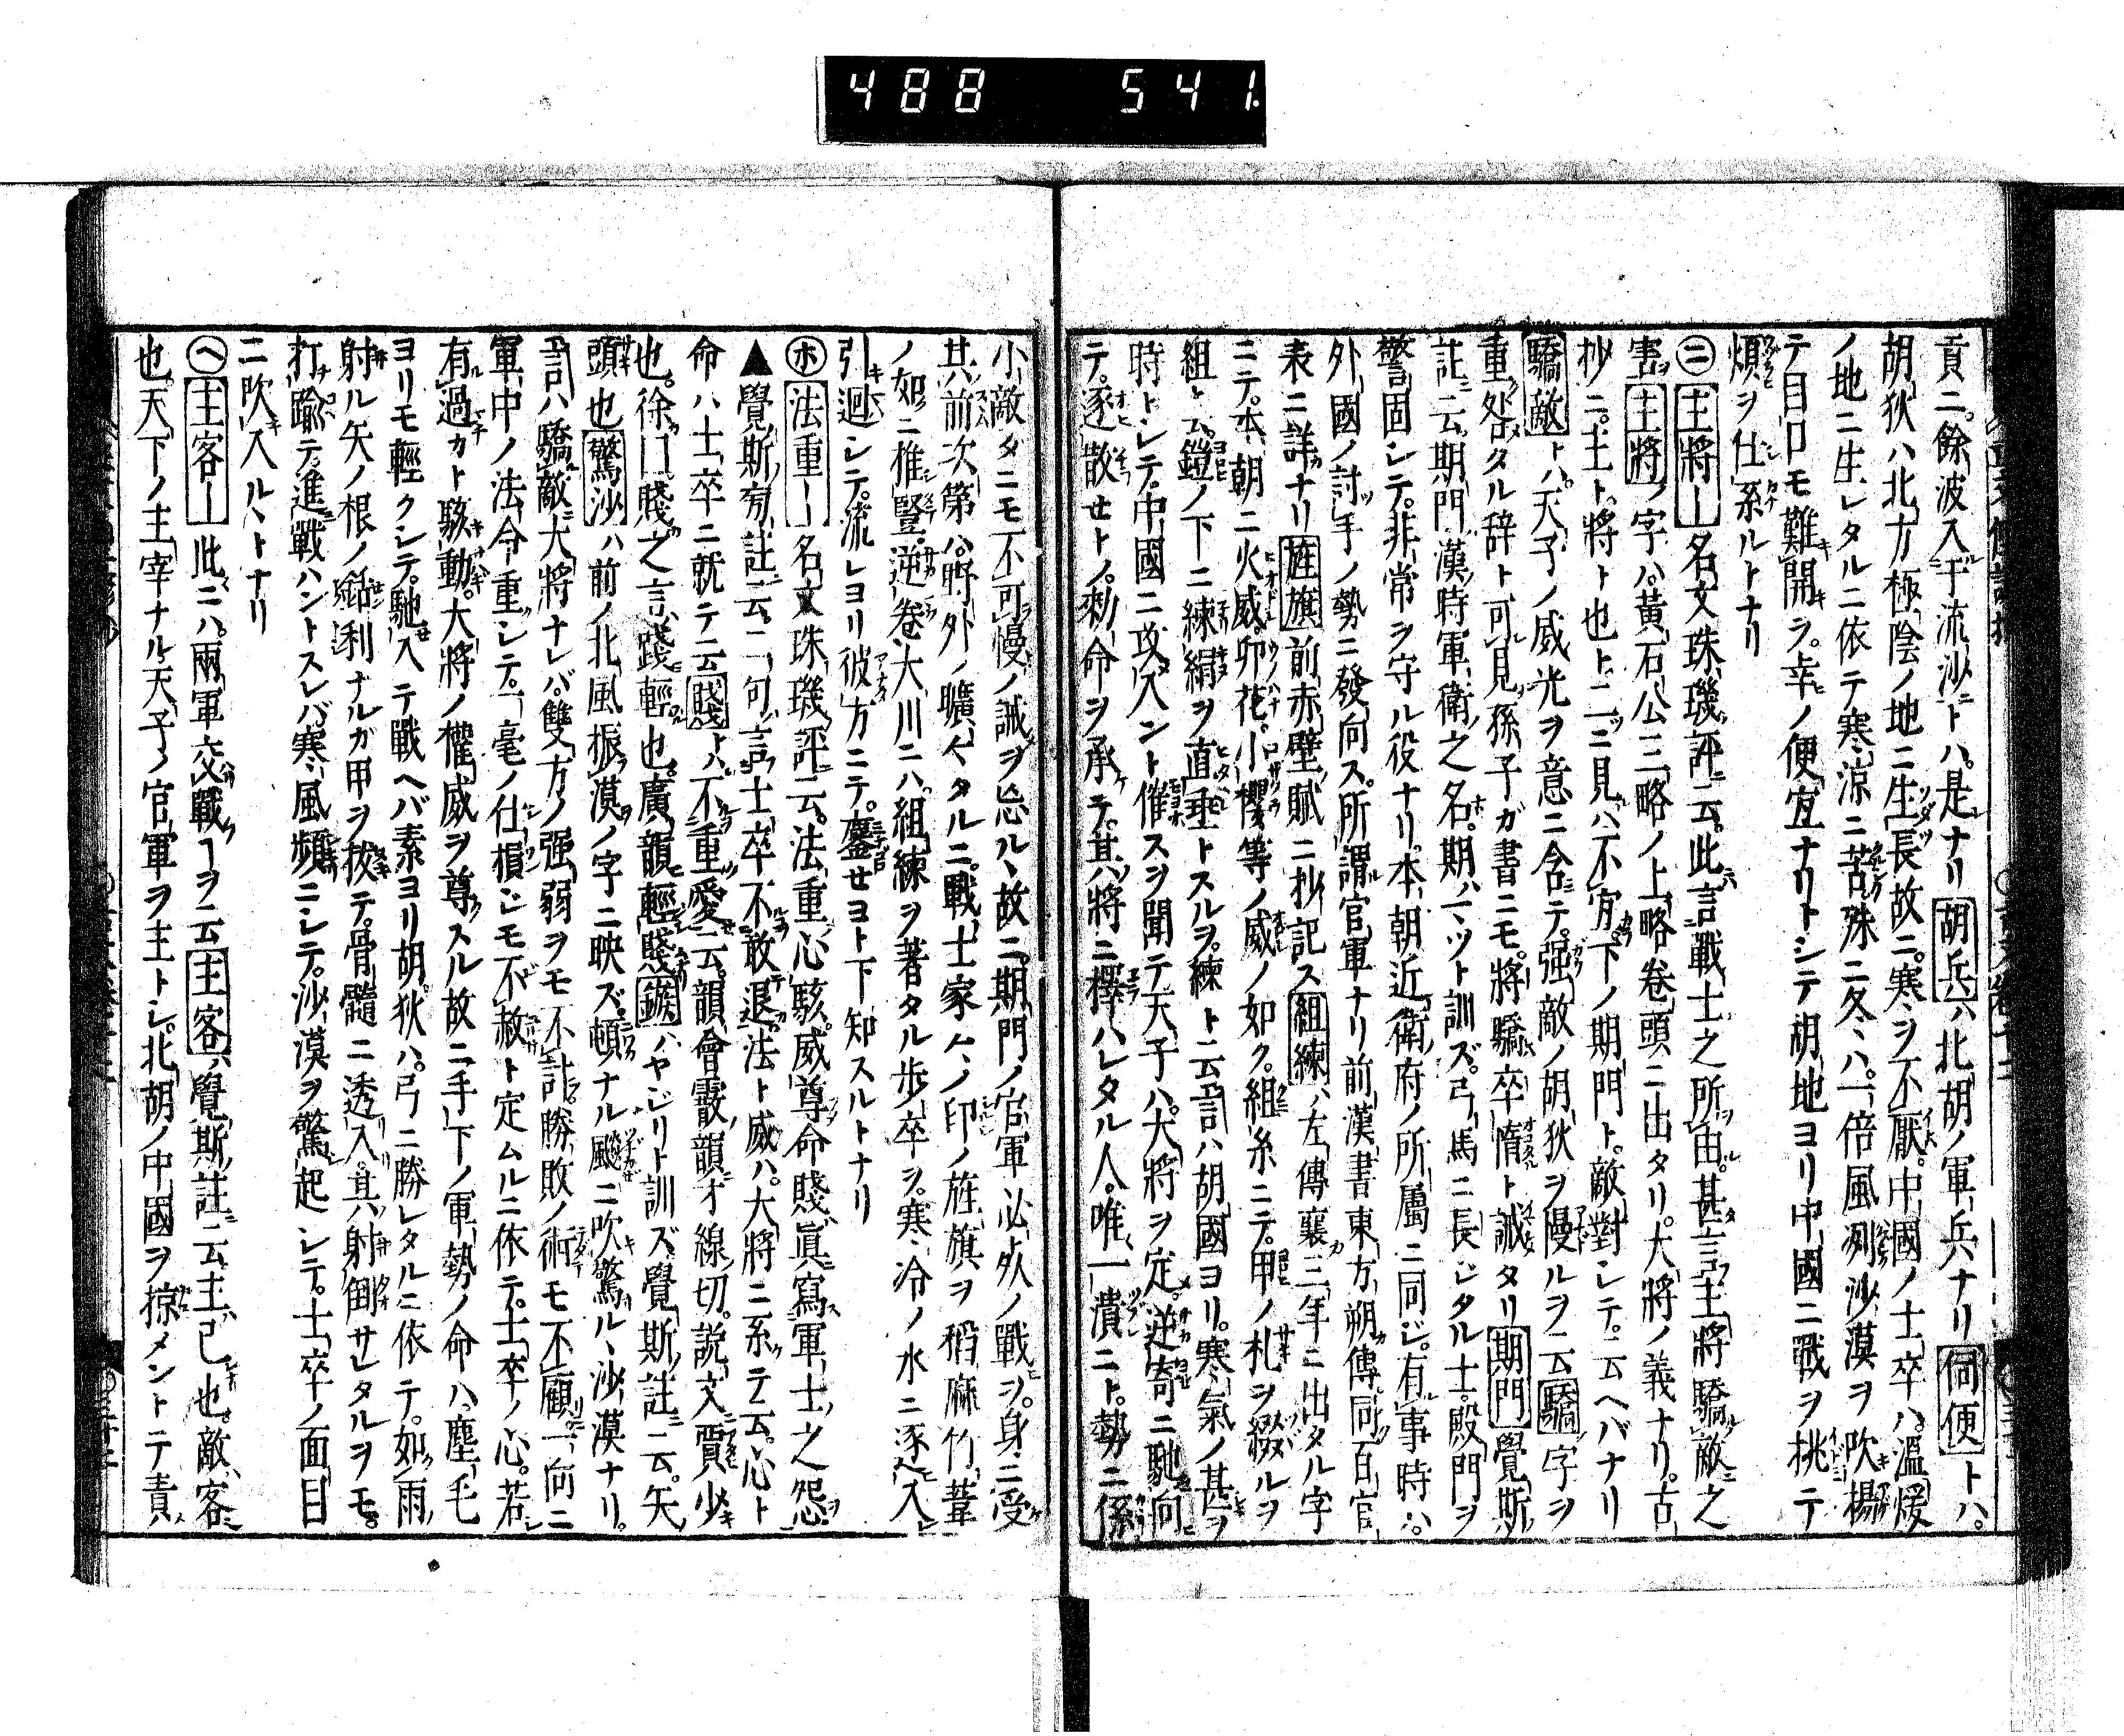 488 541.
貢ニ。餘波入于流沙トハ。是ナリ 胡兵ハ北胡ノ軍兵ナリ 伺便トハ。
胡狄ハ北方極陰ノ地ニ生長故ニ。寒ヲ不厭。中國ノ士卒ハ。溫煖
ノ地ニ生レタルニ依テ寒涼ニ苦殊ニ冬ハ。一倍風冽沙漠ヲ吹楊
テ目口モ難開ラ。幸ノ便宜ナリトシテ胡地ヨリ中國ニ戰ヲ桃テ
煩ヲ仕系ルトナリ
㊁主將ー名文珠璣評云。此言戰士之所由。甚言主將驕敵之
害 主將ノ字ハ。黃石公三略ノ上略卷頭ニ出タリ。大將ノ義ナリ。古
抄ニ。主ト。將ト也ト。二ニ見ハ不宜。下ノ期門ト。敵對シテ。云ヘバナリ
驕敵トハ。天子ノ威光ヲ意ニ含テ。强敵ノ胡狄ヲ慢ルヲ云 驕字ヲ
重咎タル辞ト可見孫子ガ書ニモ。將驕卒惰ト誡タリ 期門 覺斯
註云。期門漢時軍衛之名。期ハ一ツト訓ズ。弓馬ニ長ジタル士。殿門ヲ
警固シテ。非常ヲ守ル役ナリ。本朝近衛府ノ所屬ニ同ジ。有事時ハ。
外國ノ討手ノ勢ニ發向ス。所謂官軍ナリ前漢書東方朔傳同百官
表ニ詳ナリ 旌旗 前赤壁賦ニ抄記ス 組練ハ左傳襄三年ニ出タル字
ニテ。本朝ニ火威。卯花。小櫻等ノ威ノ如ク。組糸ニテ。甲ノ札ヲ綴ルヲ
組ト云。鎧ノ下ニ練絹ヲ直垂トスルヲ。練ト云言ハ胡國ヨリ。寒氣ノ甚ヲ
時トシテ。中國ニ攻入ント催スヲ聞テ天子ハ。大將ヲ定。逆寄ニ馳向
テ。逐散セトノ。勅命ヲ承テ。其將ニ擇ハレタル人。唯一潰ニト。勢ニ係
小敵ダニモ不可慢ノ誡ヲ忘ル丶故ニ。期門ノ官軍必死ノ戰ヲ。身ニ受
其前次第ハ野外ノ曠〻タルニ。戰士家〻ノ印ノ旌旗ヲ稻麻竹葦
ノ如ニ推豎。逆卷大川ニハ。組練ヲ著タル歩卒ヲ。寒冷ノ水ニ逐入
引迴シテ。流レヨリ彼方ニテ。鏖セヨト下知スルトナリ
㋭法重ー名文珠璣評云。法重心駭威尊命賤眞寫軍士之怨
▲覺斯旁註云。二句言士卒不敢退。法ト威ハ。大將ニ系テ云。心ト
命ハ士卒ニ就テ云 賤トハ。不重愛云。韻會霰韻才線切。說文賈少
也。徐曰賤之言踐輕也。廣韻輕賤 鏃ハヤジリト訓ズ覺斯註云。矢
頭也 驚沙ハ前ノ北風振漠ノ字ニ映ズ頓ナル飈ニ吹驚ル丶沙漠ナリ。
言ハ驕敵大將ナレバ。雙方ノ强弱ヲモ不計勝敗ノ術モ不顧一向ニ
軍中ノ法令重シテ。一毫ノ仕損ジモ不赦ト定ムルニ依テ。士卒ノ心。若
有過カト駭動。大將ノ權威ヲ尊スル故ニ手下ノ軍勢ノ命ハ塵毛
ヨリモ輕クシテ。馳入テ戰ヘバ素ヨリ胡狄ハ。弓ニ勝レタルニ依テ。如雨
射ル矢ノ根ノ銛利ナルガ甲ヲ拔テ。骨髓ニ透入。其射倒サレタルヲモ。
打踰テ。進戰ハントスレバ寒風頻ニシテ。沙漠ヲ驚起シテ。士卒ノ面目
ニ吹入ル丶トナリ
㋬主客ー此ニハ。兩軍交戰ヿヲ云 主客ハ覺斯註云主己也。敵客
也天下ノ主宰ナル天子ノ官軍ヲ主トシ。北胡ノ中國ヲ掠メントテ責